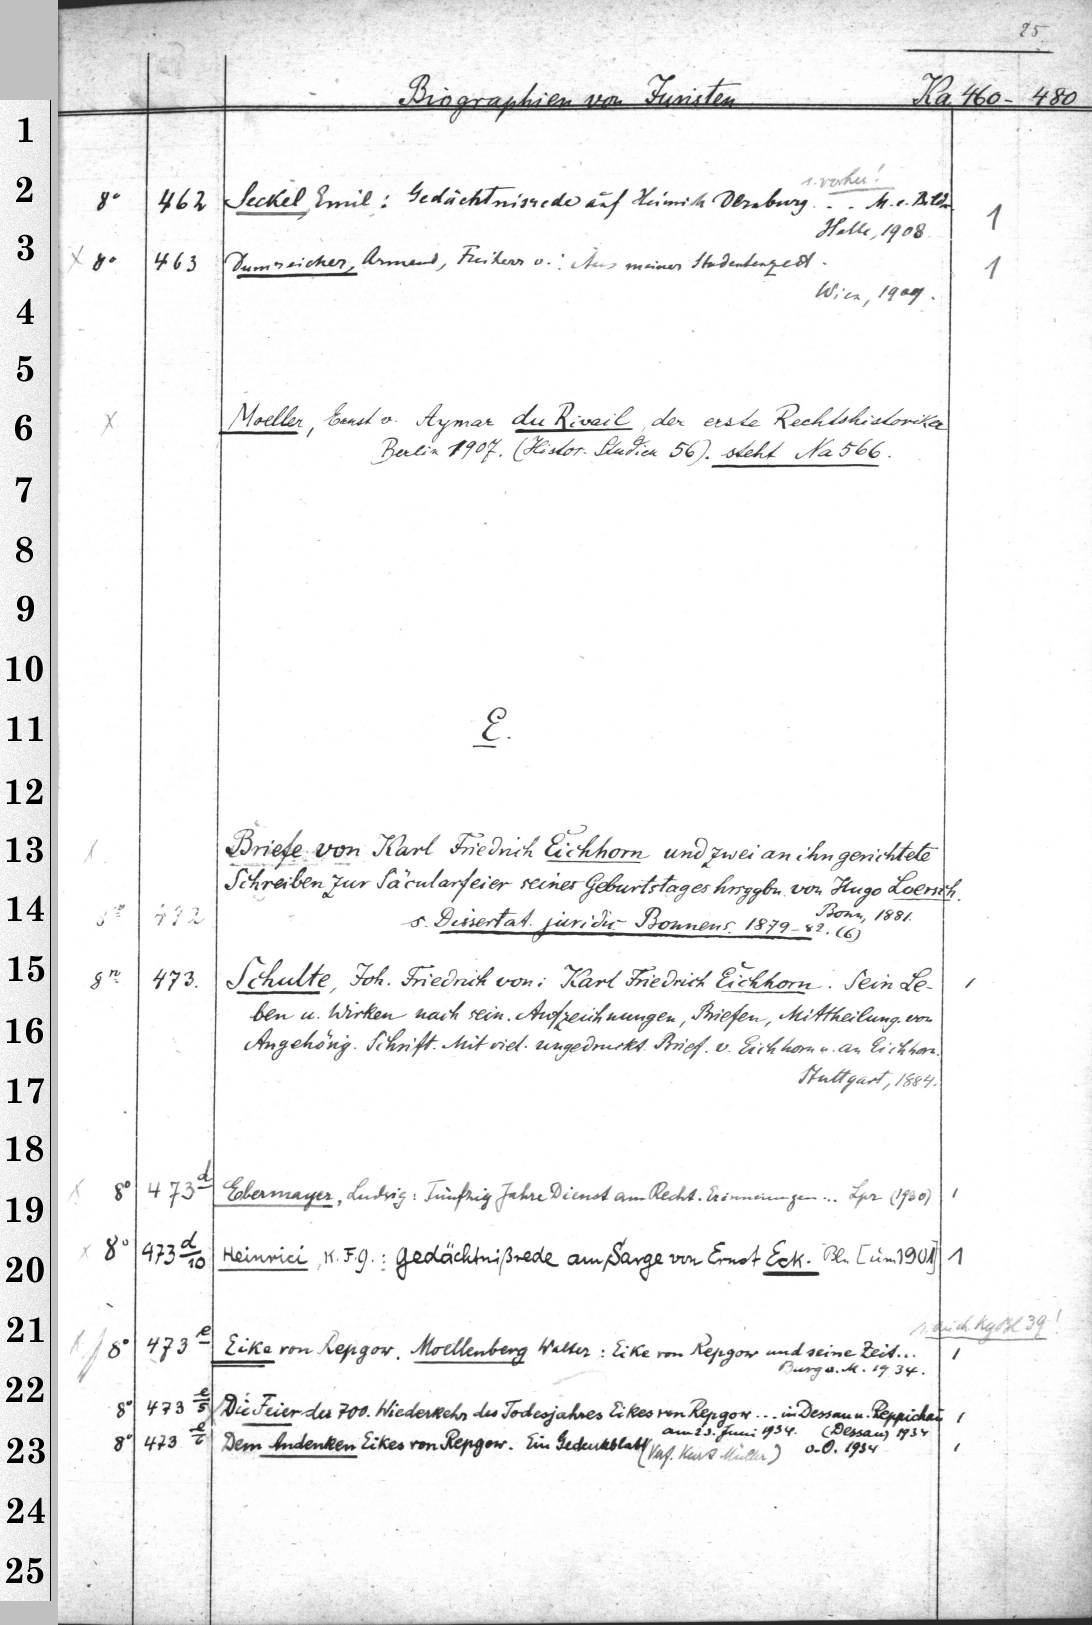 25
Biographien von Juristen Ka 460 - 480
1
s. vorher!
2 8° 462 Seckel, Emil: Gedächtnisrede auf Heinrich Dernburg . . . M. e. Bildn. 1
Halle, 1908.
3 x 8° 463 Dumreicher, Armand, Freiherr v.: Aus meiner Studentenzeit. 1
4 Wien, 1909.
5
6 x Moeller, Ernst v. Aymar du Rivail, der erste Rechtshistoriker
Berlin 1907. (Histor. Studien 56). steht Na 566.
7
8
9
10
11 E.
12
13 x Briefe von Karl Friedrich Eichhorn und zwei an ihn gerichtete
Schreiben zur Säcularfeier seines Geburtstages hrsggbn. von Hugo Loersch.
Bonn, 1881.
14 472 s. Dissertat. juridic. Bonnens. 1879-82. (6)
15 8° 473. Schulte, Joh. Friedrich von: Karl Friedrich Eichhorn. Sein Le-
ben u. Wirken nach sein. Aufzeichnungen, Briefen, Mittheilung. von
16 Angehörig. Schrift. Mit viel. ungedruckt. Brief. v. Eichhorn u. an Eichhorn.
17 Stuttgart, 1884.
18
19 x 8° 473 d Ebermayer, Ludwig: Fünfzig Jahre Dienst am Recht. Erinnerungen... Lpz (1930) 1
20 x 8° 473 d/10 Heinrici, K. F. G.: Gedächtnißrede am Sarge von Ernst Eck. Bln [um 1901] 1
21 s. auch Kg 39!
8° 473 e Eike von Repgow. Moellenberg Walter: Eike von Repgow und seine Zeit... 1
Burg b. M. 1934.
22 8° 473 e/5 Die Feier der 700. Wiederkehr des Todesjahres Eikes von Repgow ... in Dessau u. Reppichau 1
am 23. Juni 1934. (Dessau) 1934
23 8° 473 e/6 Dem Andenken Eikes von Repgow. Ein Gedenkblatt (Verf. Kurt Müller) o.O. 1934 1
24
25